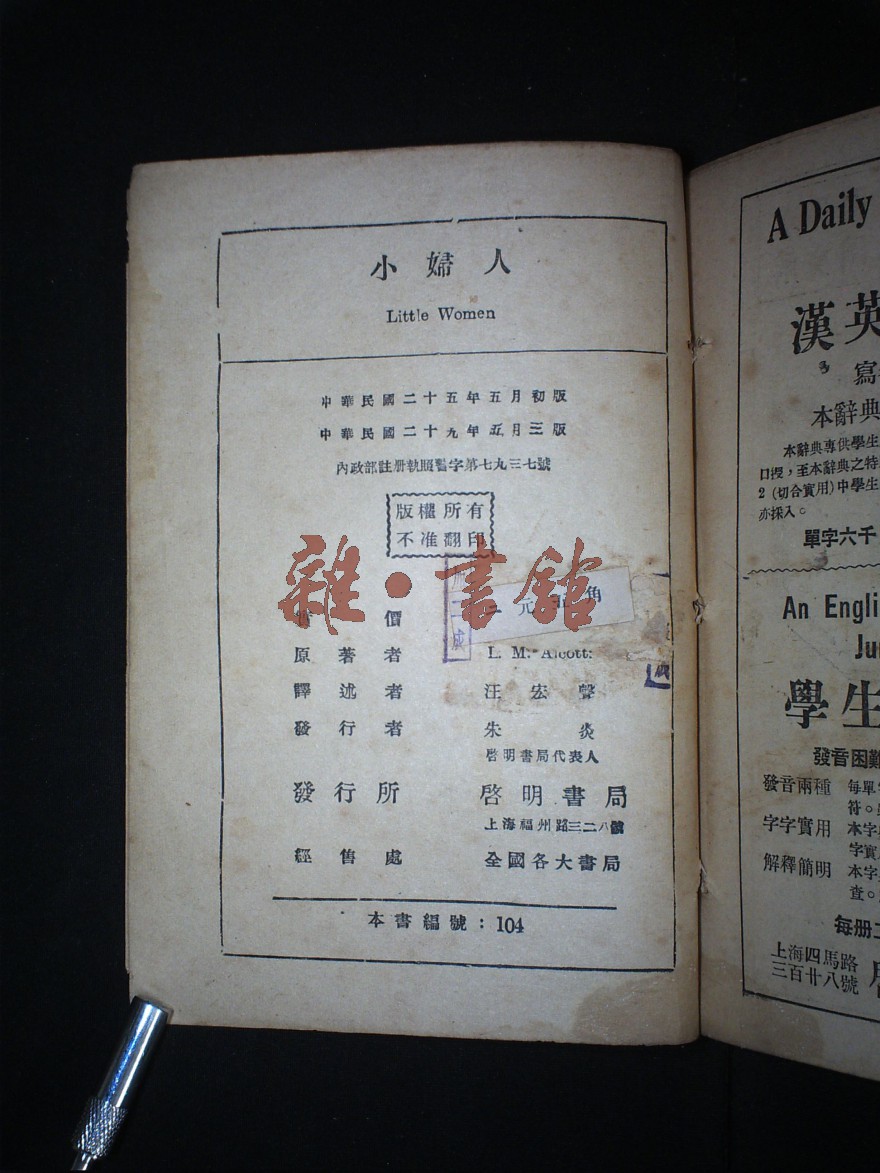 小婦人
Little Women
中華民國二十五年五月初版
中華民國二十九年五月三版
內政部註册執照警字第七九三七號
版權所有
不准翻印
雜·書館
價 二元五角
原著者 L. M. Alcott:
譯述者 汪宏聲
發行者 朱炎
啓明書局代表人
發行所 啓明書局
上海福州路三二八號
經售處 全國各大書局
本書編號：104
A Daily
漢英
寫
本辭典
本辭典專供學生
口授，至本辭典之特
2 (切合實用)中學生
亦採入。
單字六千
An Engli
Ju
學生
發音困難
發音兩種 每單
符。
字字實用 本字
字實
解釋簡明 本字
查。
每册二
上海四馬路
三百廿八號